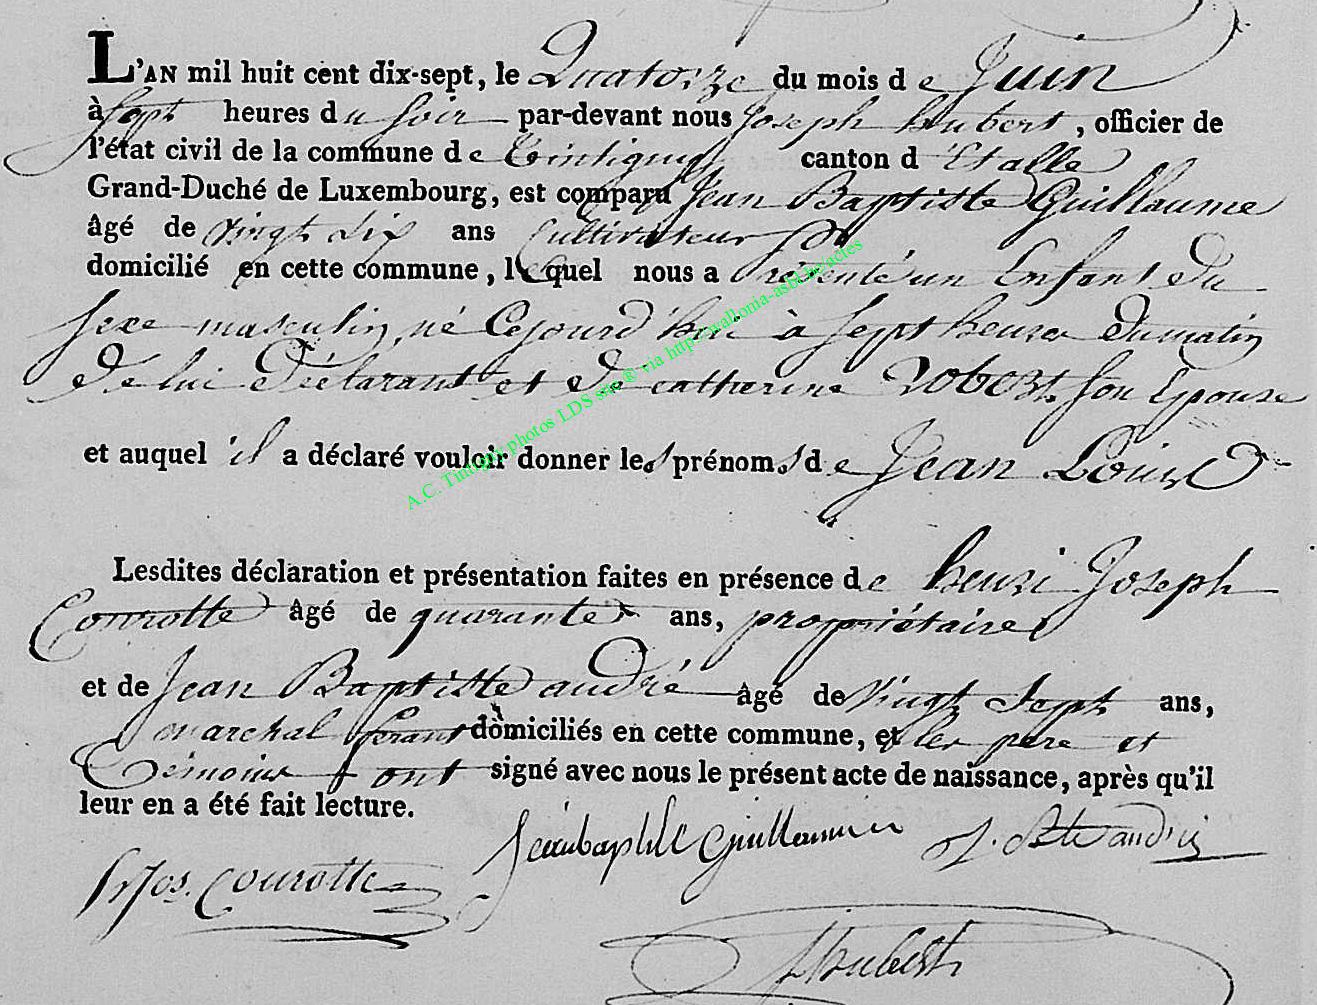 L'AN mil huit cent dix-sept, le Quatorze du mois de Juin
à Sept heures du Soir par-devant nous Joseph hubert, officier de
l'état civil de la commune de Tintigny canton d'Etalle
Grand-Duché de Luxembourg, est comparu Jean Baptiste Guillaume
âgé de vingt six ans Cultivateur
domicilié en cette commune, lequel nous a Présenté un Enfant du
sexe masculin, né Cejourd'hui à sept heures du matin
de lui Déclarant et de catherine Robert son Epouse
et auquel il a déclaré vouloir donner les prénoms de Jean Louis
Lesdites déclaration et présentation faites en présence de henri Joseph
Courotte âgé de quarante ans, propriétaire
et de Jean Baptiste andré âgé de Vingt Sept ans,
marechal ferant domiciliés en cette commune, et les père et
Témoins ont signé avec nous le présent acte de naissance, après qu'il
leur en a été fait lecture.
Jeanbaptite Guillaume J. Bte andré
hr Jos. Courotte
J hubert
A.C. Tintigny photos LDS site® via http://wallonia-asbl.be/actes